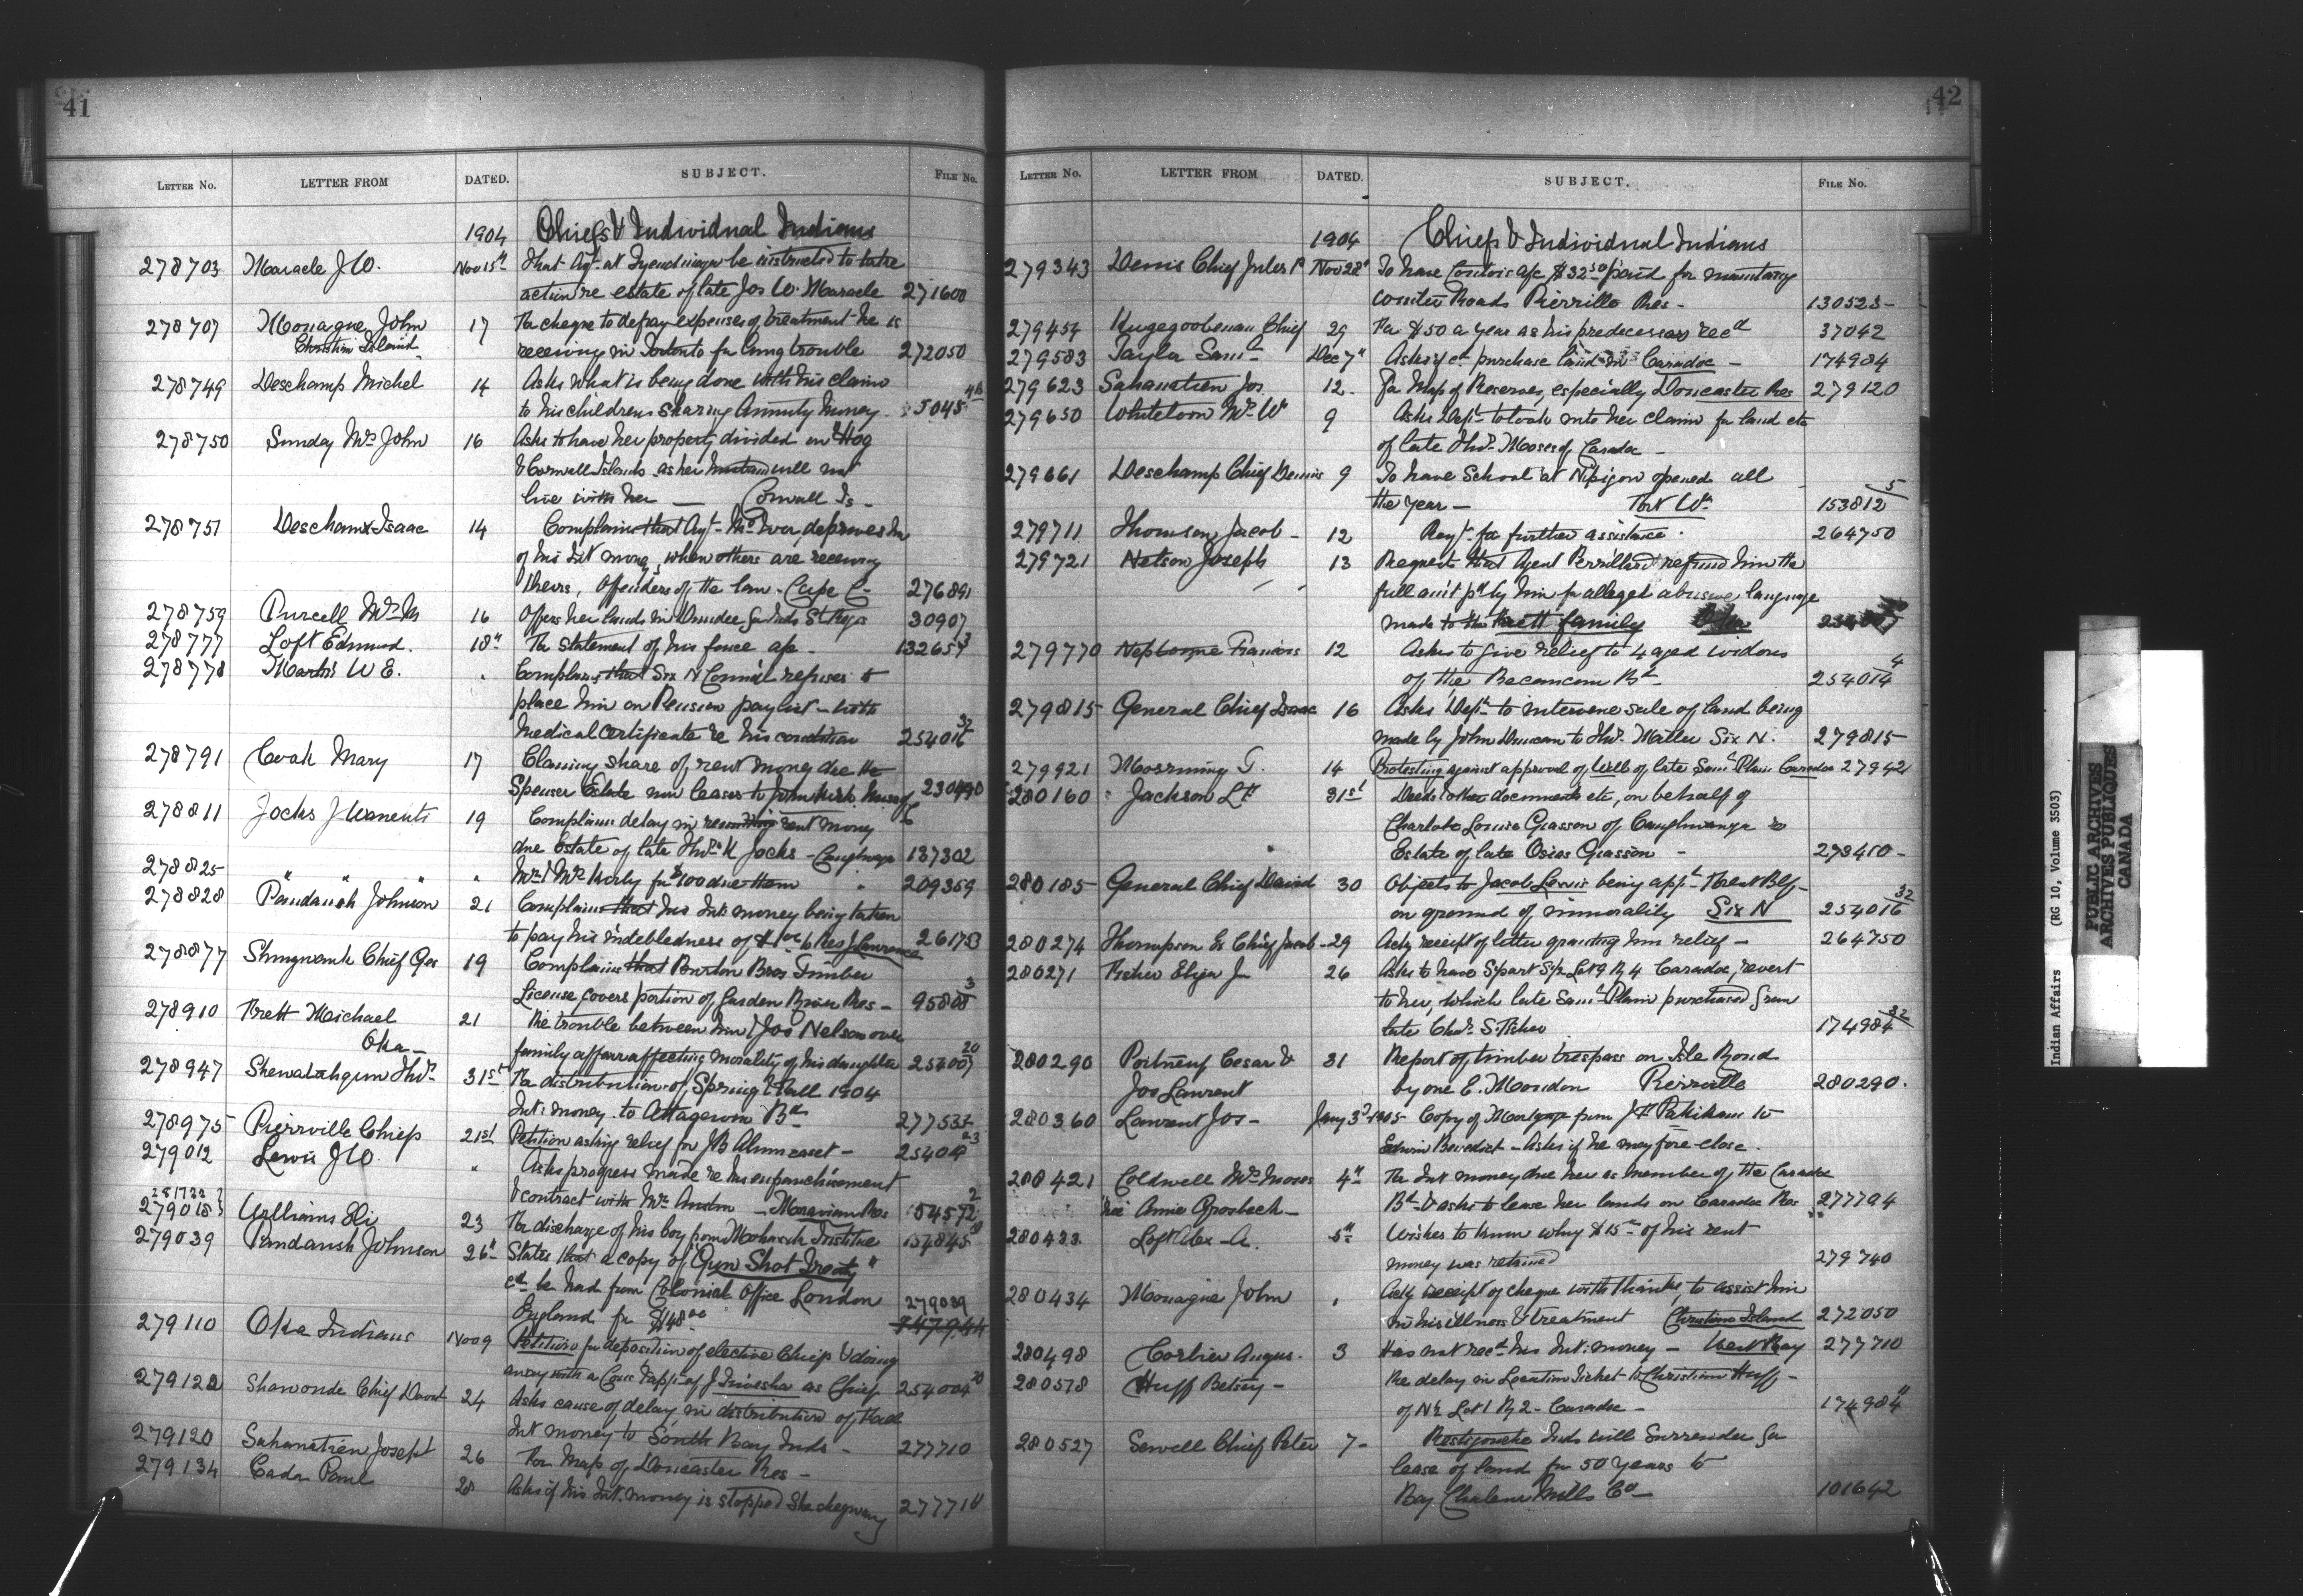 41
LETTER No. LETTER FROM DATED. SUBJECT. FILE No.
1904 Chiefs & Individual Indians
278703 Maracle J W. Nov 15th That Agt. at Tyendinaga be instructed to take
action re estate of late Jos W. Maracle 271600
278707 Monague John 17 Re cheque to defray expenses of treatment he is
Christian Island receiving in Toronto for lung trouble 272050
278749 Deschamp Michel 14 Asks what is being done with his claim
to his childrens sharing Annuity Money
278750 Sunday Mrs John 16 Asks to have her property divided on Hog
& Cornwall Islands as her will not
live with her — Cornwall Is -
278751 Deschamp Isaac 14 Complains that Agt. deprives him
of his Int money, when others are receiving
theirs, Offenders of the law - Cape C- 276891
278759 Purcell Mrs M 16 Offers her lands in Dundee for Inds St Regis 30907
278777 Loft Edmund. 18th Re statement of his fence a/c - 132654 3
278778 Martin W E. " Complains that Six N Council refuses to
place him on Pension paylist - with
medical certificate re his condition 254016 32
278791 Cook Mary 17 Claiming share of rent money due the
Spenser Estate now leased to 230490
278811 Jocks J Wanenti 19 Complains delay in rent money
due Estate of late Thos K Jocks - Caughnaga 137302
278825 " " " " for $100 due them " 209359
278828 Paudaush Johnson 21 Complains that his Int money being taken
to pay his indebtedness of 261753
278877 Shingwauk Chief Geo 19 Complains that Burton Bros Timber
License covers portion of Garden River Res - 95805 3
278910 Brett Michael 21 Re trouble between him & Jos Nelson over
Oka - family affair affecting morality of his daughter 254007 20
278947 Shewatahgun Thos. 31st Re distribution of Spring & Fall 1904
Int: money to Bd 277535
278975 Pierrville Chiefs 21st Petition asking relief for J B
279012 Lewis J W. " Asks progress made re his enfranchisement
& contract with Mr. - Moravian Res
279018 Williams Eli 23 Re discharge of his boy from Mohawk Institue 154845
279039 Paudaush Johnson 26th States that a copy of "Gun Shot Treaty"
cd be had from Colonial Office London 279039
England for $48.00
279110 Oka Indians Nov 9 Petition for deposition of elective Chiefs & doing
away with a Counc & app of J as Chief 254004 20
279122 Shawonde Chief David 24 Asks cause of delay in distribution of Fall
Int money to South Bay Inds - 277710
279120 Sahanatien Joseph 26 For Map of Doncaster Res -
279134 Cada Paul 28 Asks if his Int. money is stopped Sheshegwaning 277710
42
LETTER No. LETTER FROM DATED. SUBJECT. FILE No.
1904 Chiefs & Individual Indians
279343 Denis Chief Jules Nov 28th To have a/c $32.50 paid for maintaing
winter Roads Pierrille Res - 130523 -
279454 Chief 29 For $50 a year as his predecessors recd 37042
279583 Taylor Saml Dec 7th Asks if cd purchase land in Caradoc - 174984
279623 Sahanatien Jos 12 - For Map of Reserves, especially Doncaster Res 279120
279650 Whiteloon Mrs W 9 Asks Dept to look into her claim for land etc
of late Thos. Moses of Caradoc -
279661 Deschamp Chief Dennis 9 To have School at Nipigon opened all
the year - Port Wm 153812 5
279711 Thomson Jacob - 12 Reqt. for further assistance. 264750
279721 Nelson Joseph 13 Requests that Agent Perrillard refund him the
full am't pd by him for alleged abusive language
made to the Brett family Oka
279770 Francois 12 Asks to give relief to 4 aged widows
of the Becancour Bd - 254014 4
279815 General Chief Isaac 16 Asks Dept to intervene sale of land being
made by John Duncan to Thos. Miller Six N. 279815
279921 G. 14 Protesting against approval of Will of late Saml Plain Caradoc 27942
280160 Jackson L H 31st Deeds & other documents etc, on behalf of
Charlotte Louise Giasson of Caughnwanga re
Estate of late Osias Giasson - 273410 -
280185 General Chief David 30 Objects to Jacob Lewis being appt Forest Blf -
on ground of immorality Six N 254016 32
280274 Thompson Ex Chief Jacob - 29 Ackg receipt of letter granting him relief - 264750
280271 Fisher Eliza J 26 Asks to have S part S½ Lot 9 R 4 Caradoc, revert
to her, which late Saml Plain purchased from
late Chas. S. Fisher 174984 32
280290 Portneuf Cesar & 31 Report of timber trespass on Isle Rond
Jos Laurent by one E. Mondon Pierrville 280290.
280360 Laurent Jos - Jany 3d 1905 Copy of Mortgage from to
Edwin Benedict - Asks if he may fore-close.
280421 Coldwell Mrs Moses 4th Re Int money due her as member of the Caradoc
nee Annie Grosbeck - Bd & asks to lease her lands on Caradoc Res 277794
280433 Loft Alex - A. 5th Wishes to know why $15.00 of his rent
money was retained 279740
280434 Monague John " Ackg receipt of cheque with thanks, to assist him
in his illness & treatment Christian Island 272050
280498 Corbier Angus. 3 Has not recd his Int: money - West Bay 277710
280578 Huff Betsey - Re delay in Location Ticket to Christian Huff -
of N½ Lot 1 R 2 - Caradoc - 174984 11
280527 Sewell Chief Peter 7 - Restigouche Inds will Surrender for
lease of land for 50 years to
Bay Chaleur Mills Co - 101642
Indian Affairs (RG 10, Volume 3503)
PUBLIC ARCHIVES
ARCHIVES PUBLIQUES
CANADA